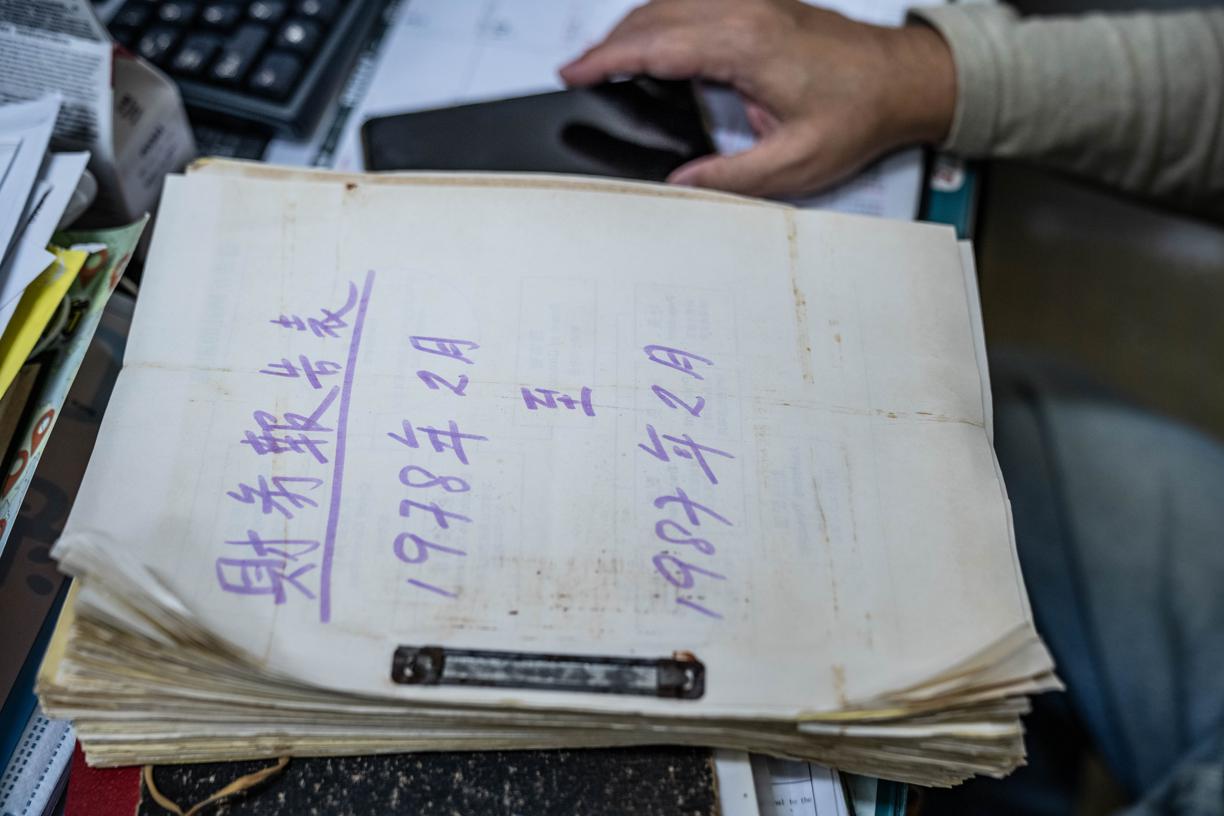 財務報告表
1978年2月
至
1987年2月